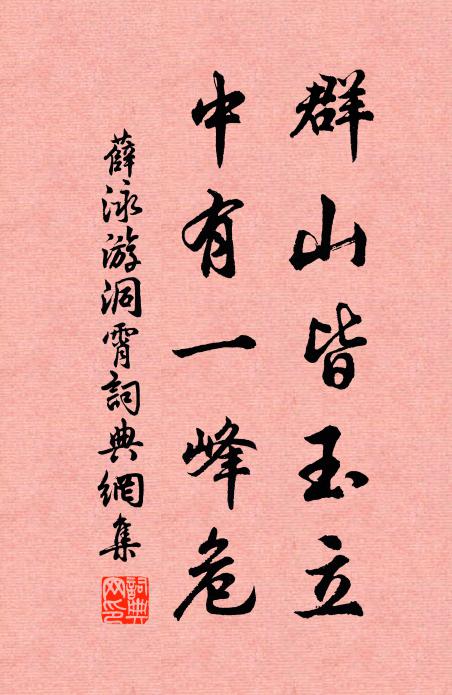 群山皆玉立
中有一峰危
薛泳游洞霄詞典網集
詞典
网印